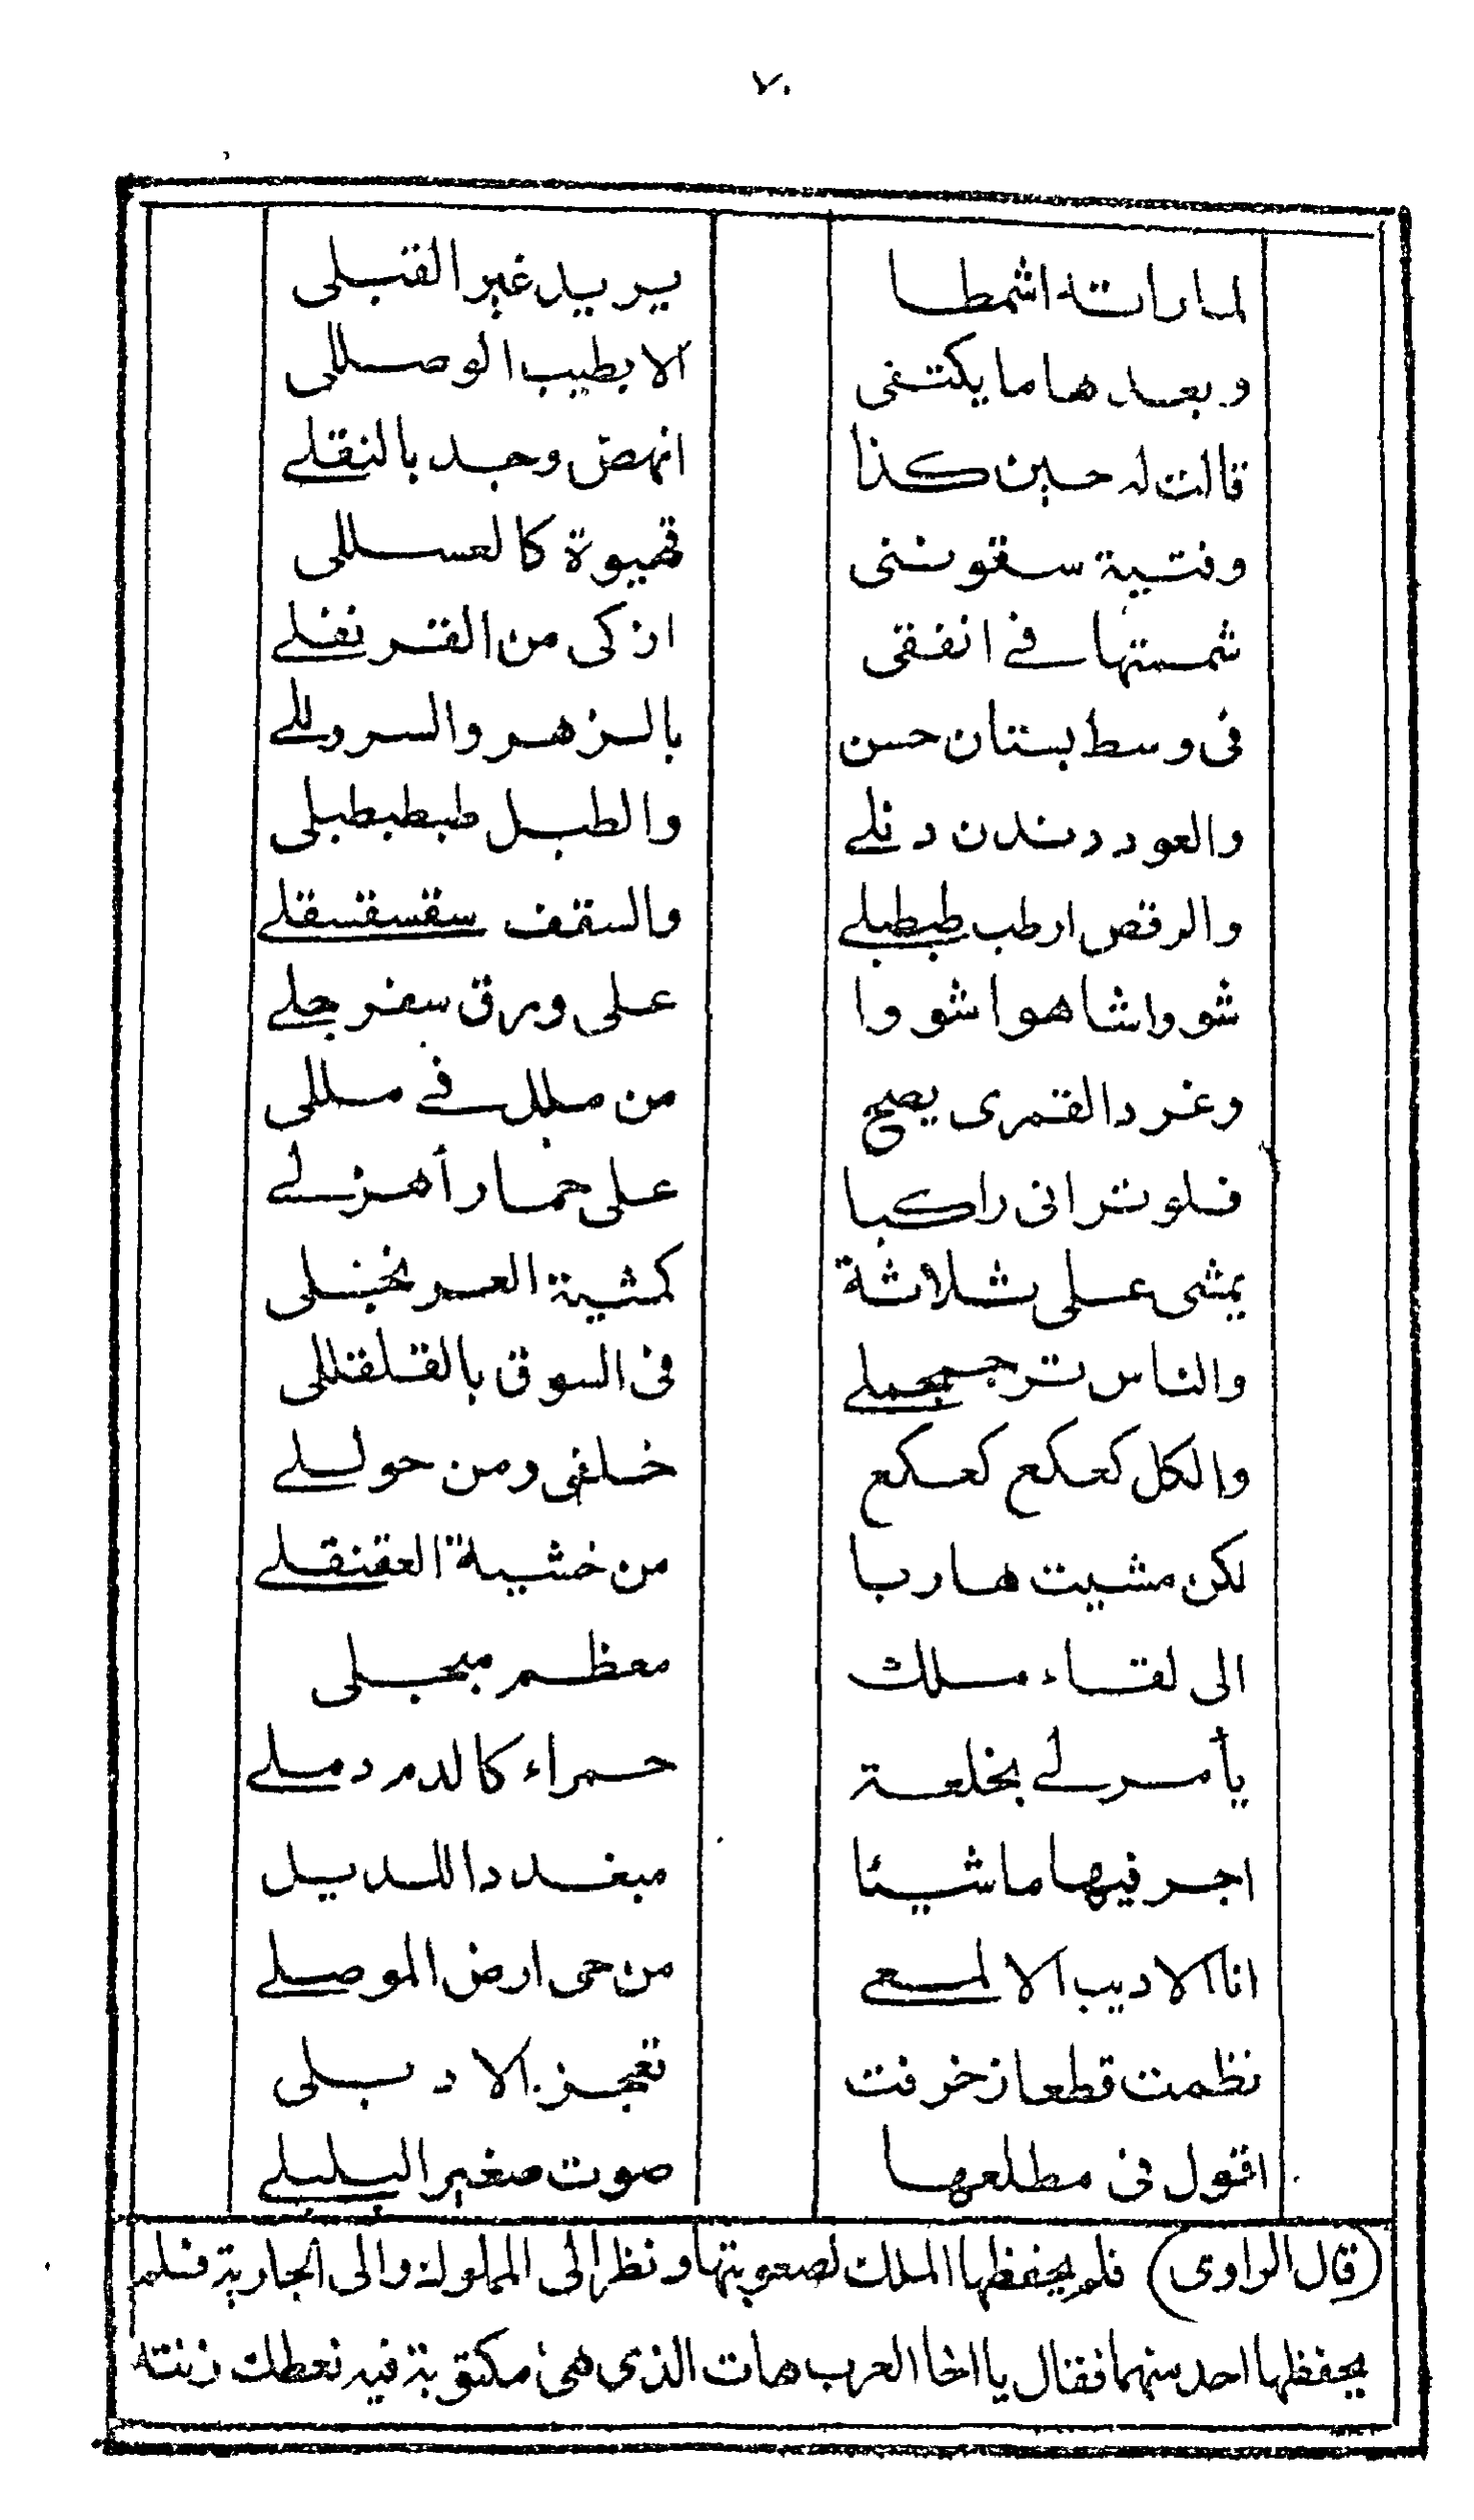 ٧٠
لما رأته اشمطا يريد غير القبلى
وبعدها ما يكتفى الا بطيب الوصللى
قالت له حين كذا انهض وجد بالنقلى
وفتية سقوننى قهيوة كالعسللى
شممتها فى انفقى ازكى من القرنفلى
فى وسط بستان حسن بالزهر والسروللى
والعود دندن دنلى والطبل طبطبطبلى
والرقص ارطب طبطبلى والسقف سقسقسقلى
شووا شاهوا شووا على ورق سفرجلى
وغرد القمرى يصيح من ملل فى مللى
فلو ترانى راكبا على حمار أهزلى
يمشى على ثلاثة كمشية العرنجبلى
والناس ترجمجملى فى السوق بالقلقللى
والكل كعكع كعكع خلفى ومن حوللى
لكن مشيت هاربا من خشية العقنقلى
الى لقاء ملك معظم مبجلى
يأمر لى بخلعة حمراء كالدم دملى
اجر فيها ماشيئا مبغددا للديل
انا الاديب الالمعى من حى ارض الموصلى
نظمت قطعا زخرفت تعجز الادبلى
اقول فى مطلعها صوت صفير البلبلى
(قال الراوى) فلم يحفظها الملك لصعوبتها ونظر الى المملوك والى الجارية فلم
يحفظها احد منهما فقال يا اخا العرب هات الذى هى مكتوبة فيه نعطك زنته